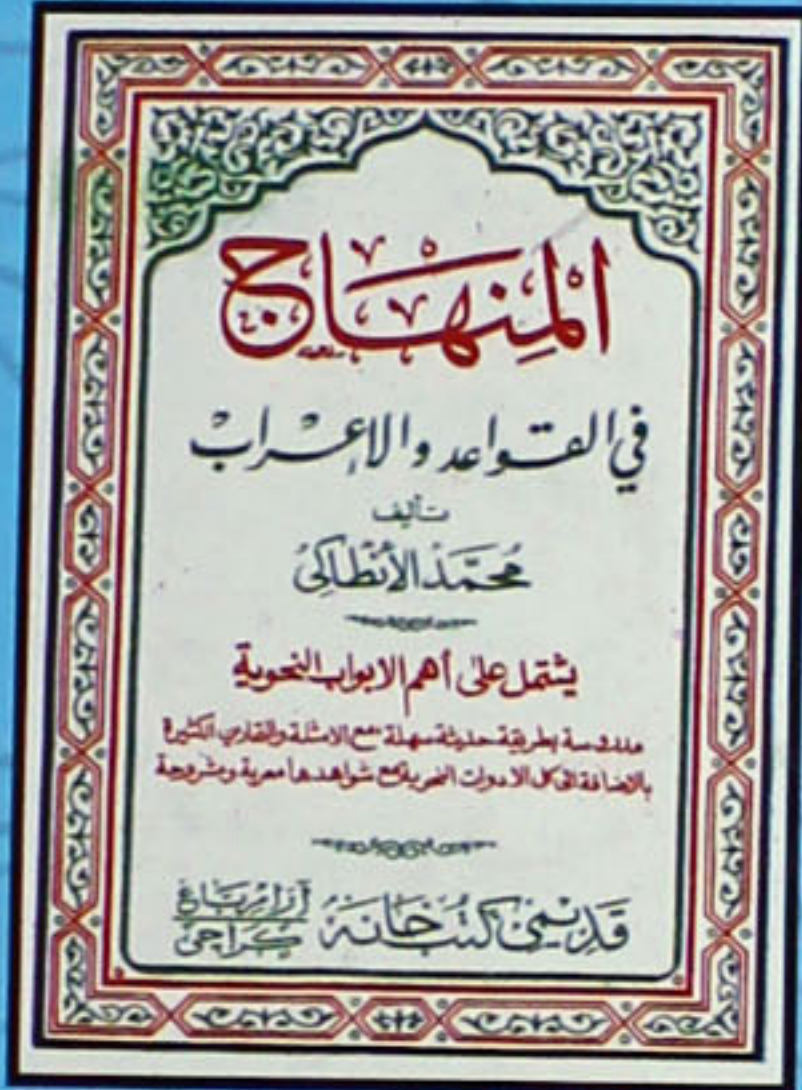 المِنهَاج
في القواعد والإعراب
تأليف
محمّد الأنطاكي
يشتمل على أهم الابواب النحوية
مدروسة بطريقة حديثة سهلة مع الامثلة والتمارين الكثيرة
بالاضافة الى كل الادوات النحوية مع شواهدها معربة ومشروحة
قديمي كتب خانه آرام باغ كراچی